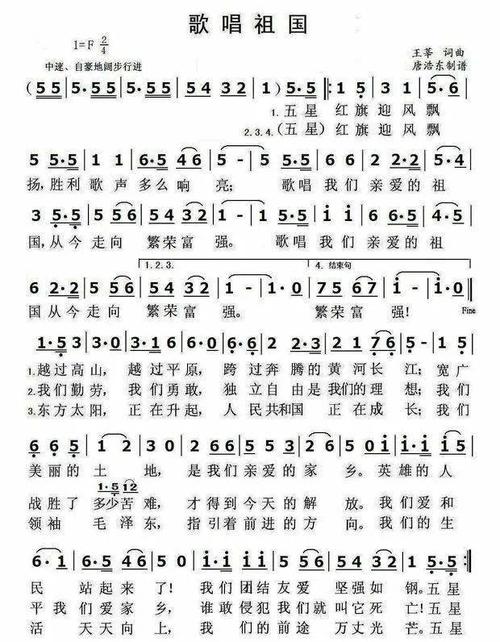 歌唱祖国
1=F 2/4
王莘 词曲
中速、自豪地阔步行进
唐浩东制谱
(5 5 | 5·5 5 5 | 1 5 3 5 | 1 0 5·5) | 1·5 | 1 3 | 5·6 |
1.五星 红旗 迎风 飘
2.3.4.(五星) 红旗 迎风 飘
5 5·5 | 3 1 | 6·5 4 6 | 5 - | 5 5·5 | 1 2 | 2·2 | 5·4 |
扬,胜利 歌声 多么 响 亮; 歌唱 我们 亲爱 的祖
3 5·5 | 5 6 | 5 4 3 2 | 1 - | 1 5·5 | i i | 6·6 | 4·5 |
国,从今 走向 繁荣富 强。 歌唱 我们 亲爱 的祖
1.2.3.
4.结束句
国从今 走向 繁荣富 强。 繁荣富 强!
Fine
1.越过高山, 越过平原, 跨过奔腾的黄河长 江; 宽广
2.我们勤劳, 我们勇敢, 独立自由是我们的理想; 我们
3.东方太阳, 正在升起, 人民共和国 正在成长; 我们
美丽的土 地, 是我们亲爱的家 乡。英雄的人
战胜了多少苦难, 才得到今天的解 放。我们爱和
领袖 毛泽东, 指引着前进的方 向。我们的生
民 站起来了! 我们团结友爱 坚强如 钢。五星
平我们爱家乡, 谁敢侵犯我们就叫它死 亡! 五星
活 天天向上, 我们的前 途万丈光 芒。五星